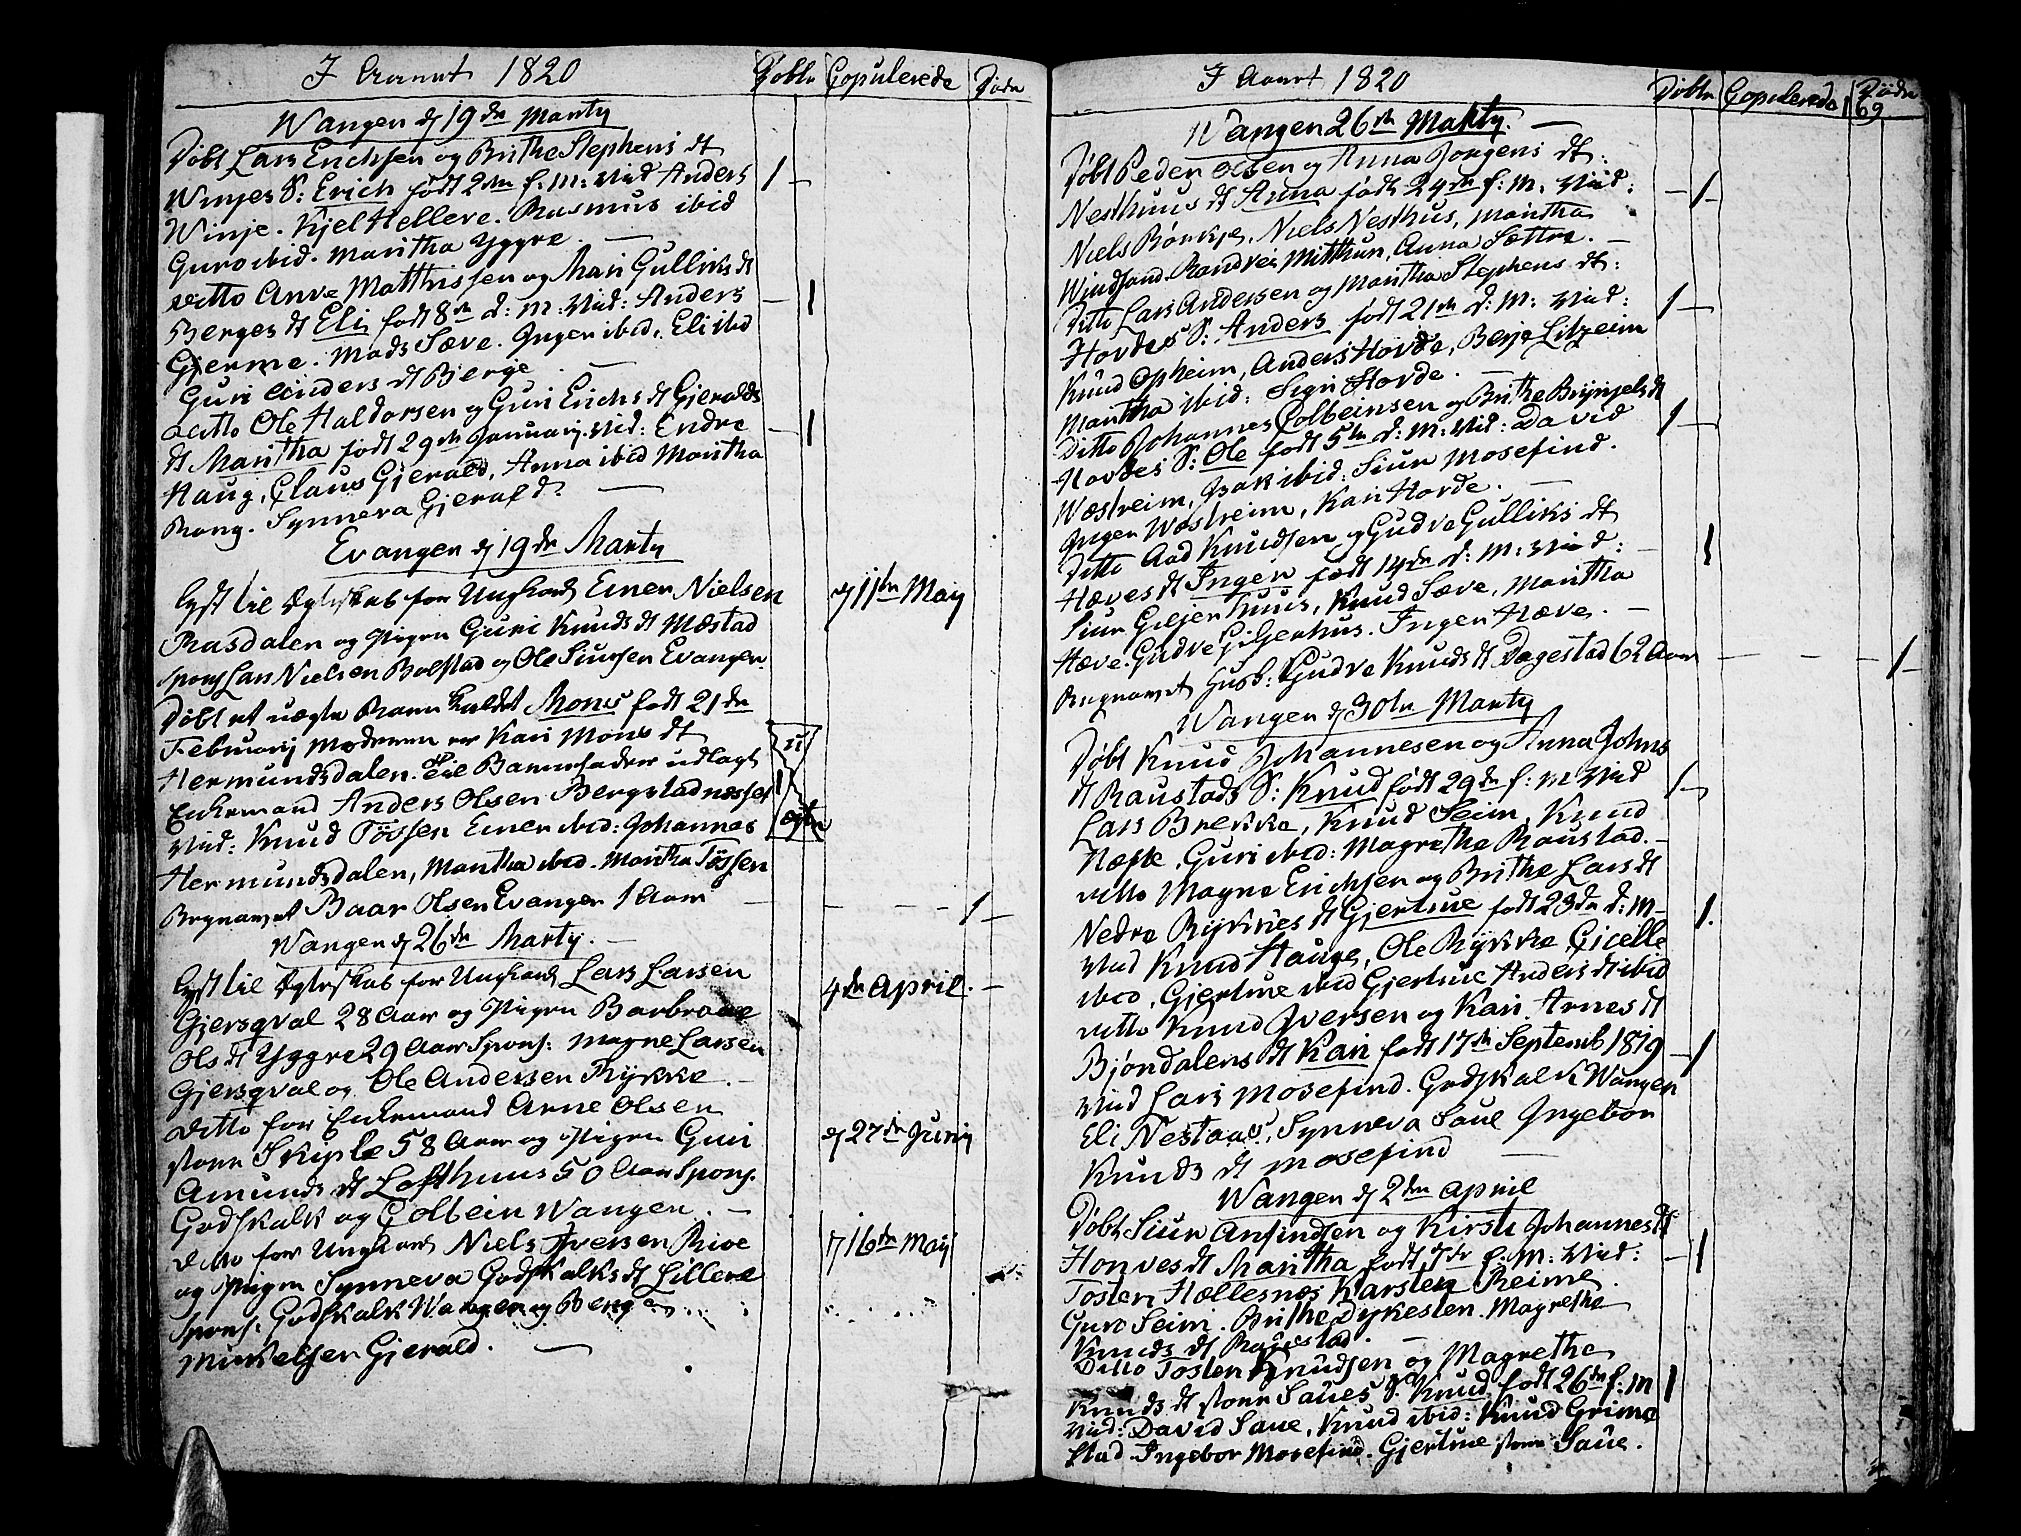 I Aaret 1820 Døbte Copulerede Døde
Wangen d 19de Marty
Døbt Lars Erichsen og Brithe Stephens dt
Winjes S: Erich født 2den f: M: Vid Anders 1
Winje. Kjel Hellere. Rasmus ibid
Guro ibid. Maritha Yggre.
ditto Anve Matthissen og Mari Gulliks dt
Berges dt Eli født 8de d: M: Vid: Anders 1
Gjerme. Mads Sæve. Inger ibid. Eli ibid
Guri Anders dt Bjerge
ditto Ole Haldorsen og Guri Erichs dt Gjeralds
dt Maritha født 29de January. Vid: Endre 1
Haug, Claus Gjerald, Anna ibid Maritha
Rong. Synneva Gjerald.
Evanger d 19de Marty
Lyst til Ægteskab for Ungkarl Einer Nielsen d 11te May
Rasdalen og Pigen Guri Knuds dt Mæstad
Spons Lars Nielsen Bolstad og Ole Siursen Evanger.
Døbt et uægte Barn kaldet Mons født 21de
February Moderen er Kari Mons dt u
Hermundsdalen. Til Barnefader udlagt 1
Enkemand Anders Olsen Bergstadnesset
Vid: Knud Tøssen Einer ibid: Johannes ægte
Hermundsdalen, Maritha ibid. Maritha Tøssen
Begravet Baar Olsen Evanger 1 Aar 1
Wangen d 26de Marty.
Lyst til Ægteskab for Ungkarl Lars Larsen 4de April.
Gjersqval 28 Aar og Pigen Barbroe
Ols dt Yggre 29 Aar Spons: Magne Larsen
Gjersqval og Ole Andersen Rykke.
ditto for Enkemand Arne Olsen
store Skiple 58 Aar og Pigen Guri d 27de Juny
Amunds dt Lofthuus 50 Aar Spons.
Godskalk og Colbein Wangen.
ditto for Ungkarl Niels Iversen Rioe d 16de May
og Pigen Synneva Godskalks dt Lillere
Spons: Godskalk Wangen og Berge
Mikkelsen Gjerald.
I Aaret 1820 Døbte Copulerede Døde
169
Wangen 26de Marty.
Døbt Peder Olsen og Anna Jørgens dt:
Nesthuus dt Anna født 24de f: M. Vid: 1
Niels Rønkje. Niels Nesthus, Maritha
Windsand. Randvei Mitthun, Anna Sættre.
Ditto Lars Andersen og Maritha Stephens dt:
Hordes S: Anders født 21de d: M: Vid: 1
Knud Opheim, Anders Horde, Berje Litzeim
Maritha ibid: Sigri Horde.
Ditto Johannes Colbeinsen og Brithe Brynjels dt
Hordes S: Ole født 5te d: M: Vid: David 1
Wæstreim, Isak ibid. Siur Mosefind.
Inger Wæstreim, Kari Horde.
Ditto Aad Knudsen og Gudve Gulliks dt
Hæves dt Inger født 14de d: M: Vid: 1
Siur Giljerhuus, Knud Sæve, Maritha
Hæve. Gudve Giljerhus. Inger Hæve.
Begravet Husb: Gudve Knuds dt Dagestad 62 Aar 1
Wangen d 30te Marty
Døbt Knud Johannesen og Anna Johns
dt Raustads S: Knud født 29de f: M Vid 1
Lars Brekke, Knud Seim, Knud
Næste, Guri ibid: Magrethe Raustad.
ditto Magne Erichsen og Brithe Lars dt
Nedre Rykkes dt Gjertrue født 23de d: M 1
Vid Knud Hauge, Ole Rykke, Cicelle
ibid, Gjertrue ibid Gjertrue Anders dt ibid
ditto Knud Iversen og Kari Arnes dt
Bjøndalens dt Kari født 17de Septemb 1819 1
Vid Lars Mosefind. Godskalk Wangen
Eli Nestaas, Synneva Saue Ingebor
Knuds dt Mosefind
Wangen d 2den April
Døbt Siur Anfindsen og Kirsti Johannes dt
Honves dt Maritha født 7de f: M: Vid: 1
Tosten Hællesnes Karsten Reime.
Guro Seim. Brithe Dykesten. Magrethe
Knuds dt Raustad.
Ditto Tosten Knudsen og Magrethe
Knuds dt store Saues S. Knud født 26de f: M 1
Vid: David Saue, Knud ibid: Knud Grime
stad Ingebor Mosefind. Gjertrue store Saue.